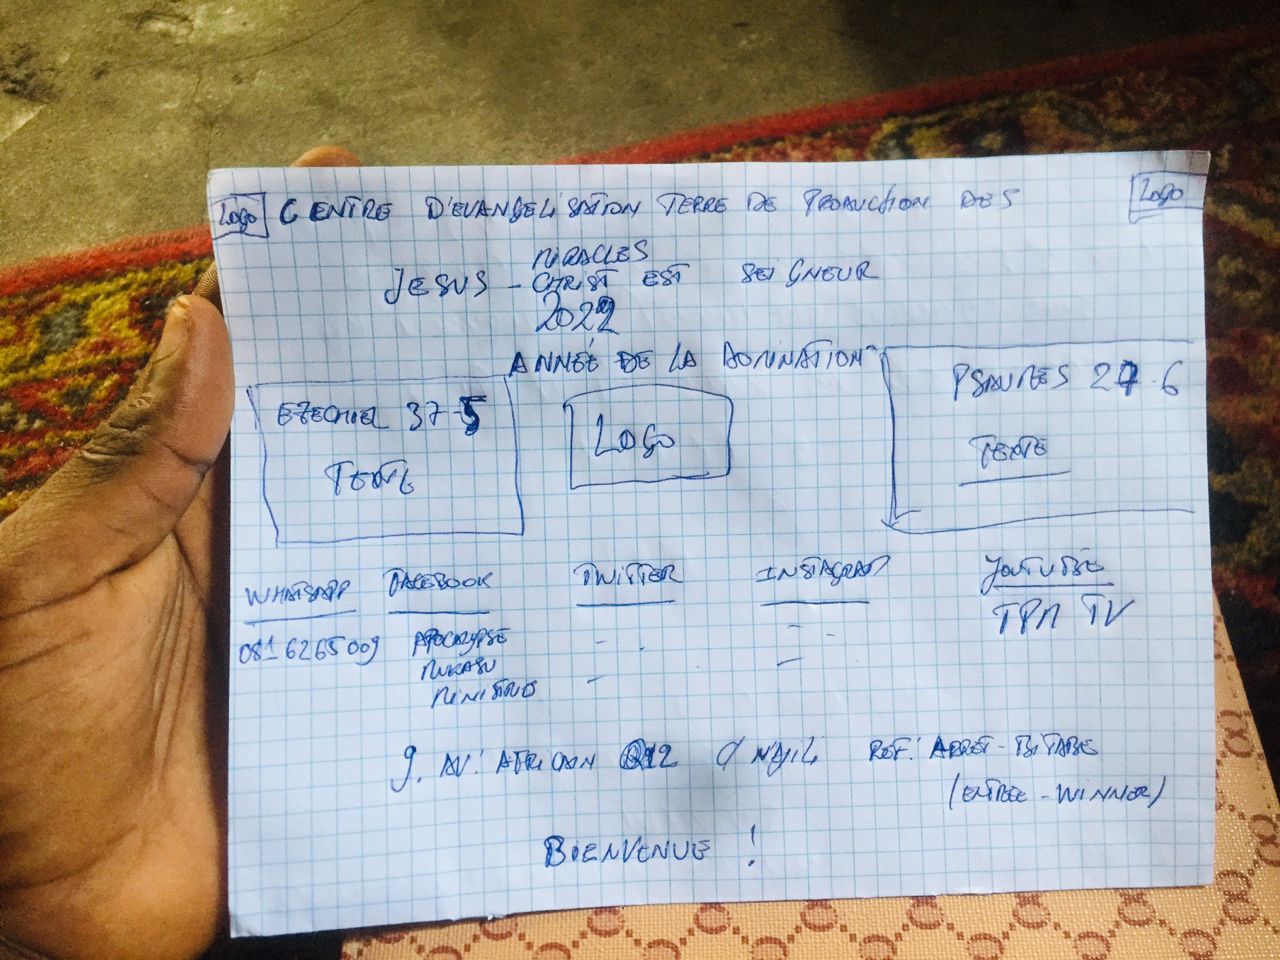 Logo CENTRE D'EVANGELISATION TERRE DE PRODUCTION DES Logo
MIRACLES
JESUS - CHRIST EST SEIGNEUR
2022
ANNÉE DE LA DOMINATION
EZECHIEL 37-5
TEXTE
LOGO
PSAUMES 27-6
TEXTE
WHATSAPP FACEBOOK TWITTER INSTAGRAM YOUTUBE
0816265009 APOCALYPSE - - TPM TV
MUKASU - -
MINISTRIES
9. AV: AFRICAN Q12 C/ NDJILI REF: ARRET-
(ENTREE-WINNER)
BIENVENUE !